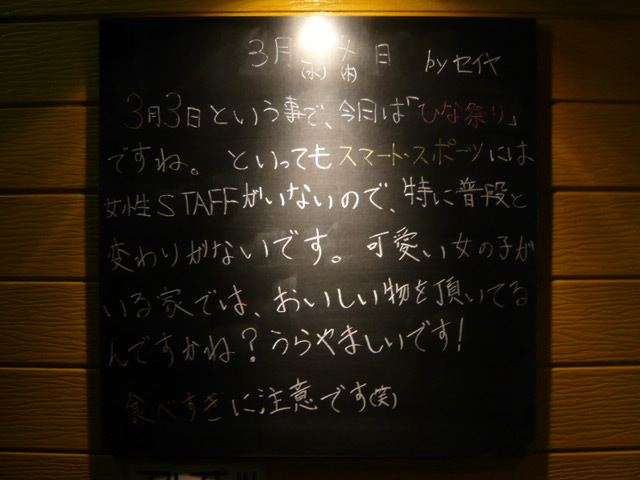 3月 日 byセイヤ
(水) (木)
3月3日という事で、今日は「ひな祭り」
ですね。 といってもスマート・スポーツには
女性STAFFがいないので、特に普段と
変わりがないです。可愛い女の子が
いる家では、おいしい物を頂いてる
んですかね?うらやましいです!
食べすぎに注意です(笑)